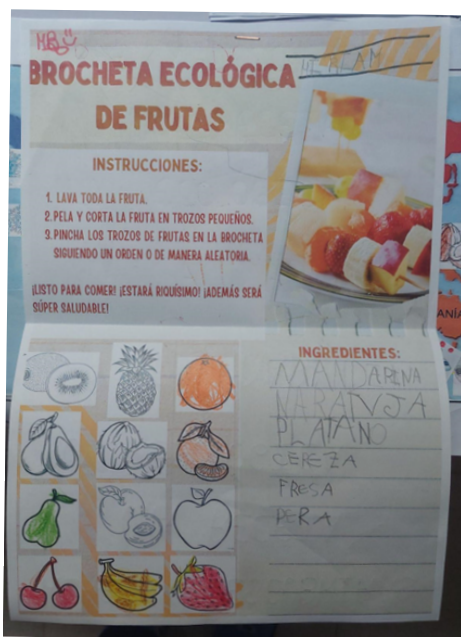 MB
BROCHETA ECOLÓGICA
DE FRUTAS
INSTRUCCIONES:
1. LAVA TODA LA FRUTA.
2. PELA Y CORTA LA FRUTA EN TROZOS PEQUEÑOS.
3. PINCHA LOS TROZOS DE FRUTAS EN LA BROCHETA
SIGUIENDO UN ORDEN O DE MANERA ALEATORIA.
¡LISTO PARA COMER! ¡ESTARÁ RIQUÍSIMO! ¡ADEMÁS SERÁ
SÚPER SALUDABLE!
INGREDIENTES:
MANDARINA
NARANJA
PLATANO
CEREZA
FRESA
PERA